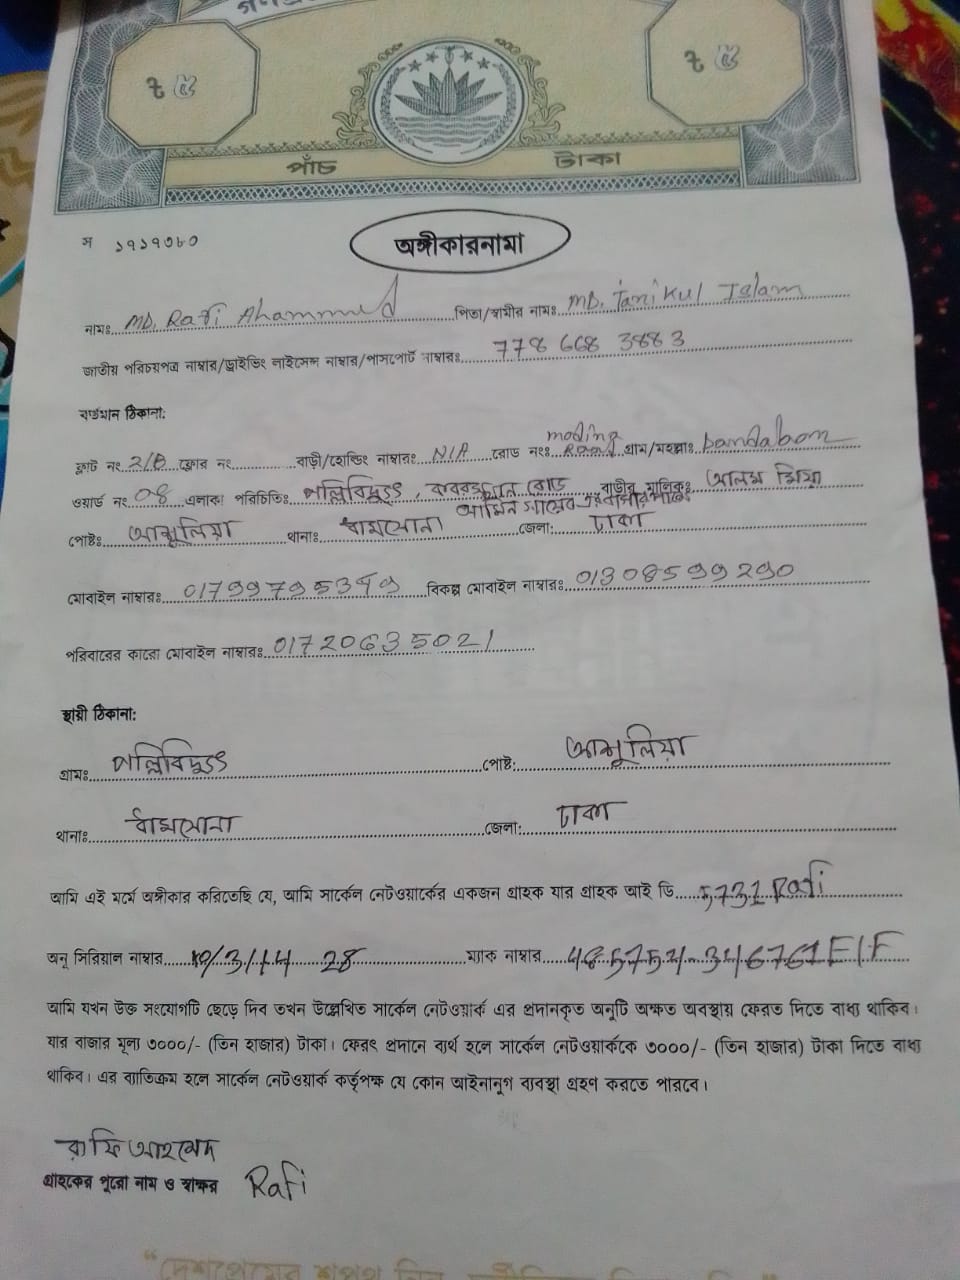 ৳ ৫ ৳ ৫
পাঁচ টাকা
স ১৭১৭৩৮০
অঙ্গীকারনামা
নামঃ MD. Rafi Ahammed পিতা/স্বামীর নামঃ MD. Tarikul Islam
জাতীয় পরিচয়পত্র নাম্বার/ড্রাইভিং লাইসেন্স নাম্বার/পাসপোর্ট নাম্বারঃ 778 668 3883
বর্তমান ঠিকানা:
ফ্লাট নং 2/B ফ্লোর নং বাড়ী/হোল্ডিং নাম্বারঃ N/A রোড নংঃ Road গ্রাম/মহল্লাঃ
ওয়ার্ড নং 08 এলাকা পরিচিতিঃ পল্লিবিদ্যুৎ, কবরস্থান রোড বাড়ীর মালিকঃ আলম মিয়া
পোষ্টঃ থানাঃ জেলা: ঢাকা
মোবাইল নাম্বারঃ বিকল্প মোবাইল নাম্বারঃ
পরিবারের কারো মোবাইল নাম্বারঃ 01720635021
স্থায়ী ঠিকানা:
গ্রামঃ পল্লিবিদ্যুৎ পোষ্ট:
থানাঃ জেলা: ঢাকা
আমি এই মর্মে অঙ্গীকার করিতেছি যে, আমি সার্কেল নেটওয়ার্কের একজন গ্রাহক যার গ্রাহক আই ডি 5731 Rafi
অনু সিরিয়াল নাম্বার ম্যাক নাম্বার
আমি যখন উক্ত সংযোগটি ছেড়ে দিব তখন উল্লেখিত সার্কেল নেটওয়ার্ক এর প্রদানকৃত অনুটি অক্ষত অবস্থায় ফেরত দিতে বাধ্য থাকিব।
যার বাজার মূল্য ৩০০০/- (তিন হাজার) টাকা। ফেরৎ প্রদানে ব্যর্থ হলে সার্কেল নেটওয়ার্ককে ৩০০০/- (তিন হাজার) টাকা দিতে বাধ্য
থাকিব। এর ব্যতিক্রম হলে সার্কেল নেটওয়ার্ক কর্তৃপক্ষ যে কোন আইনানুগ ব্যবস্থা গ্রহণ করতে পারবে।
রাফি আহমেদ
গ্রাহকের পুরো নাম ও স্বাক্ষর Rafi